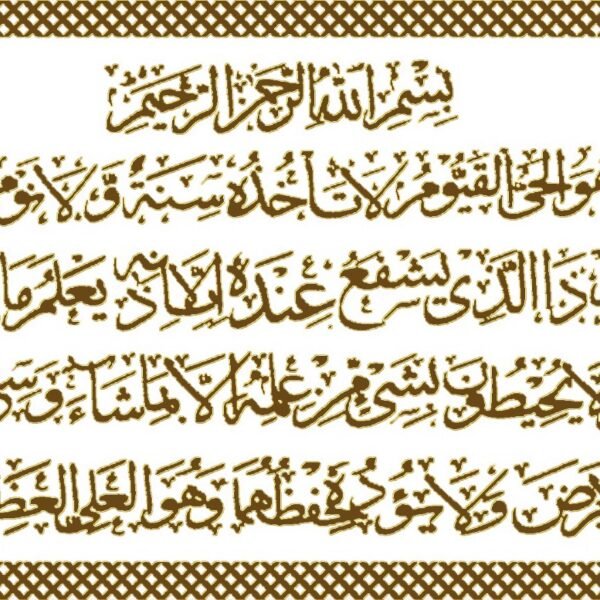 بِسْمِ اللهِ الرَّحْمٰنِ الرَّحِيْمِ
هُوَ الْحَيُّ الْقَيُّوْمُ لَا تَأْخُذُهٗ سِنَةٌ وَّلَا نَوْمٌ
ذَا الَّذِيْ يَشْفَعُ عِنْدَهٗ اِلَّا بِاِذْنِهٖ يَعْلَمُ مَا
لَا يُحِيْطُوْنَ بِشَيْءٍ مِّنْ عِلْمِهٖ اِلَّا بِمَا شَاءَ وَسِ
رْضَ وَلَا يَئُوْدُهٗ حِفْظُهُمَا وَهُوَ الْعَلِيُّ الْعَظِ